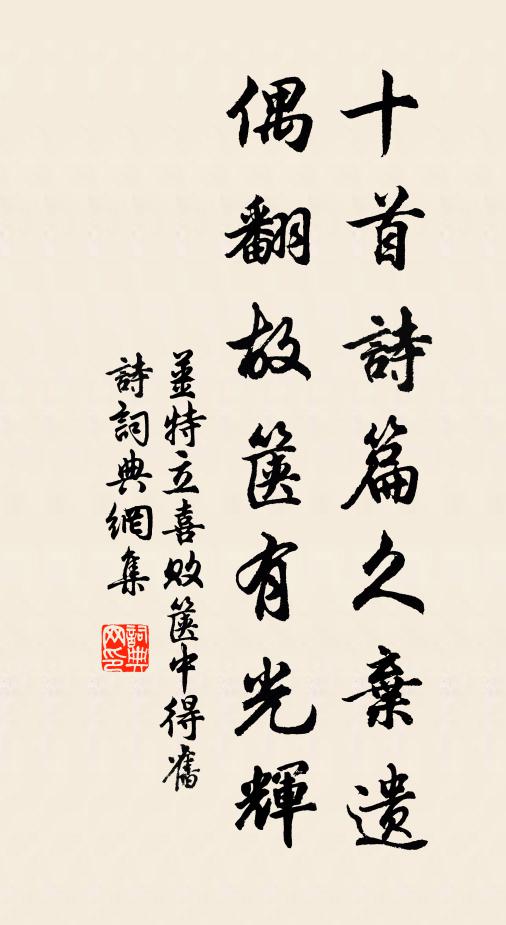 十首詩篇久棄遺
偶翻故篋有光輝
薑特立喜敗篋中得舊
詩詞典網集
詞典网印